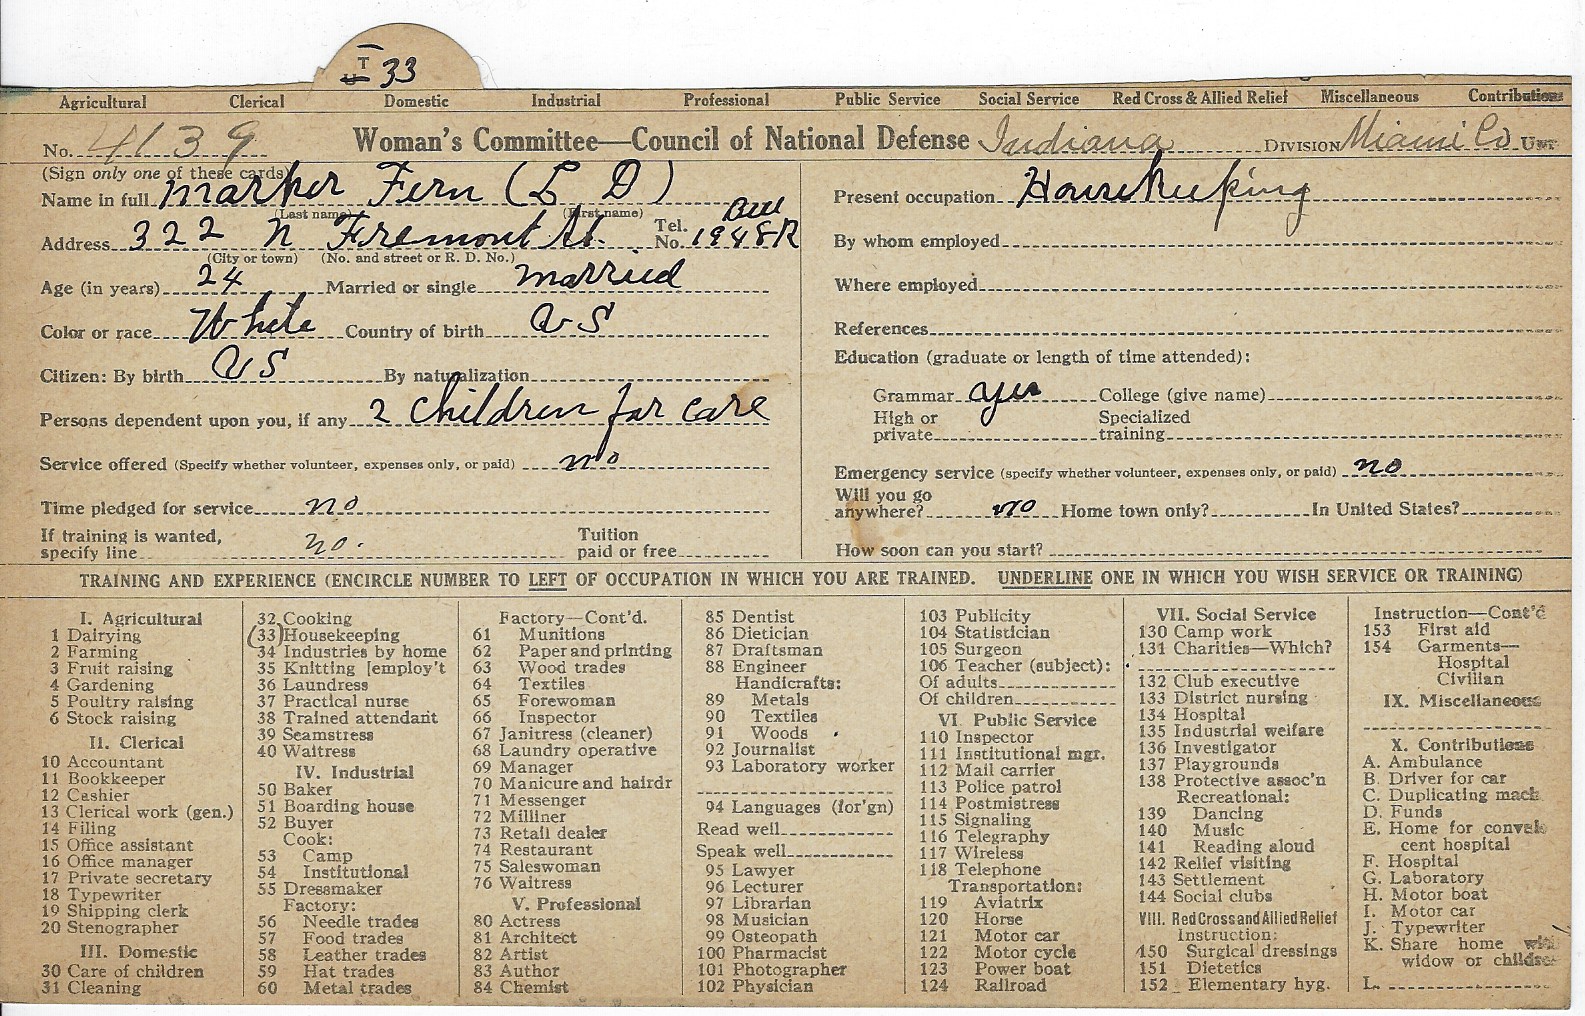 T 33
Agricultural Clerical Domestic Industrial Professional Public Service Social Service Red Cross & Allied Relief Miscellaneous Contributions
No. 4139 Woman's Committee—Council of National Defense Indiana DIVISION Miami Co UNIT
(Sign only one of these cards)
Name in full Marker Fern (L D)
(Last name) (First name)
Address 322 N Fremont St. Tel. No. Bell 1948R
(City or town) (No. and street or R. D. No.)
Age (in years) 24 Married or single married
Color or race White Country of birth US
Citizen: By birth US By naturalization
Persons dependent upon you, if any 2 children for care
Service offered (Specify whether volunteer, expenses only, or paid) no
Time pledged for service no
If training is wanted, specify line no. Tuition paid or free
Present occupation Housekeeping
By whom employed
Where employed
References
Education (graduate or length of time attended):
Grammar yes College (give name)
High or private Specialized training
Emergency service (specify whether volunteer, expenses only, or paid) no
Will you go anywhere? no Home town only? In United States?
How soon can you start?
TRAINING AND EXPERIENCE (ENCIRCLE NUMBER TO LEFT OF OCCUPATION IN WHICH YOU ARE TRAINED. UNDERLINE ONE IN WHICH YOU WISH SERVICE OR TRAINING)
I. Agricultural
1 Dairying
2 Farming
3 Fruit raising
4 Gardening
5 Poultry raising
6 Stock raising
II. Clerical
10 Accountant
11 Bookkeeper
12 Cashier
13 Clerical work (gen.)
14 Filing
15 Office assistant
16 Office manager
17 Private secretary
18 Typewriter
19 Shipping clerk
20 Stenographer
III. Domestic
30 Care of children
31 Cleaning
32 Cooking
(33) Housekeeping
34 Industries by home
35 Knitting [employ't
36 Laundress
37 Practical nurse
38 Trained attendant
39 Seamstress
40 Waitress
IV. Industrial
50 Baker
51 Boarding house
52 Buyer
Cook:
53 Camp
54 Institutional
55 Dressmaker
Factory:
56 Needle trades
57 Food trades
58 Leather trades
59 Hat trades
60 Metal trades
Factory—Cont'd.
61 Munitions
62 Paper and printing
63 Wood trades
64 Textiles
65 Forewoman
66 Inspector
67 Janitress (cleaner)
68 Laundry operative
69 Manager
70 Manicure and hairdr
71 Messenger
72 Milliner
73 Retail dealer
74 Restaurant
75 Saleswoman
76 Waitress
V. Professional
80 Actress
81 Architect
82 Artist
83 Author
84 Chemist
85 Dentist
86 Dietician
87 Draftsman
88 Engineer
Handicrafts:
89 Metals
90 Textiles
91 Woods
92 Journalist
93 Laboratory worker
94 Languages (for'gn)
Read well
Speak well
95 Lawyer
96 Lecturer
97 Librarian
98 Musician
99 Osteopath
100 Pharmacist
101 Photographer
102 Physician
103 Publicity
104 Statistician
105 Surgeon
106 Teacher (subject):
Of adults
Of children
VI. Public Service
110 Inspector
111 Institutional mgr.
112 Mail carrier
113 Police patrol
114 Postmistress
115 Signaling
116 Telegraphy
117 Wireless
118 Telephone
Transportation:
119 Aviatrix
120 Horse
121 Motor car
122 Motor cycle
123 Power boat
124 Railroad
VII. Social Service
130 Camp work
131 Charities—Which?
132 Club executive
133 District nursing
134 Hospital
135 Industrial welfare
136 Investigator
137 Playgrounds
138 Protective assoc'n
Recreational:
139 Dancing
140 Music
141 Reading aloud
142 Relief visiting
143 Settlement
144 Social clubs
VIII. Red Cross and Allied Relief
Instruction:
150 Surgical dressings
151 Dietetics
152 Elementary hyg.
Instruction—Cont'd
153 First aid
154 Garments—
Hospital
Civilian
IX. Miscellaneous
X. Contributions
A. Ambulance
B. Driver for car
C. Duplicating mach
D. Funds
E. Home for convales
cent hospital
F. Hospital
G. Laboratory
H. Motor boat
I. Motor car
J. Typewriter
K. Share home with
widow or children
L.